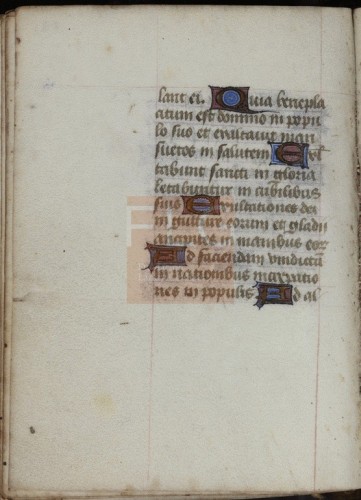 lant ei. Quia benepla
citum est domino in popu
lo suo et exaltavit man
suetos in salutem Exul
tabunt sancti in gloria
letabuntur in cubilibus
suis Exultationes dei
in gutture eorum et gladii
ancipites in manibus eorum
Ad faciendam vindictā
in nationibus increpatio
nes in populis Ad al